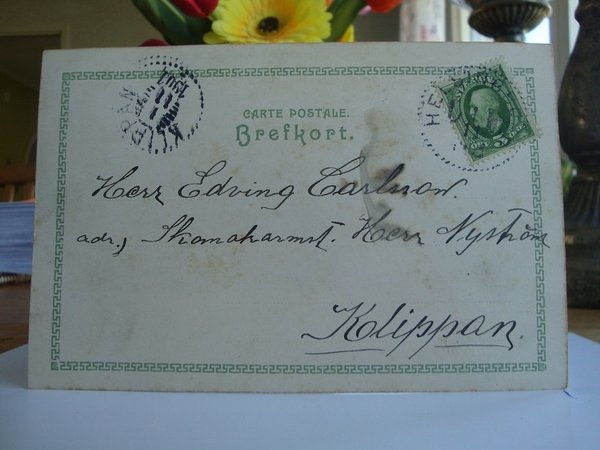 KLIPPAN
1904
CARTE POSTALE.
Brefkort.
HE
5
Herr Edving Carlsson.
adr., Skomakaremst. Herr Nyström
Klippan.